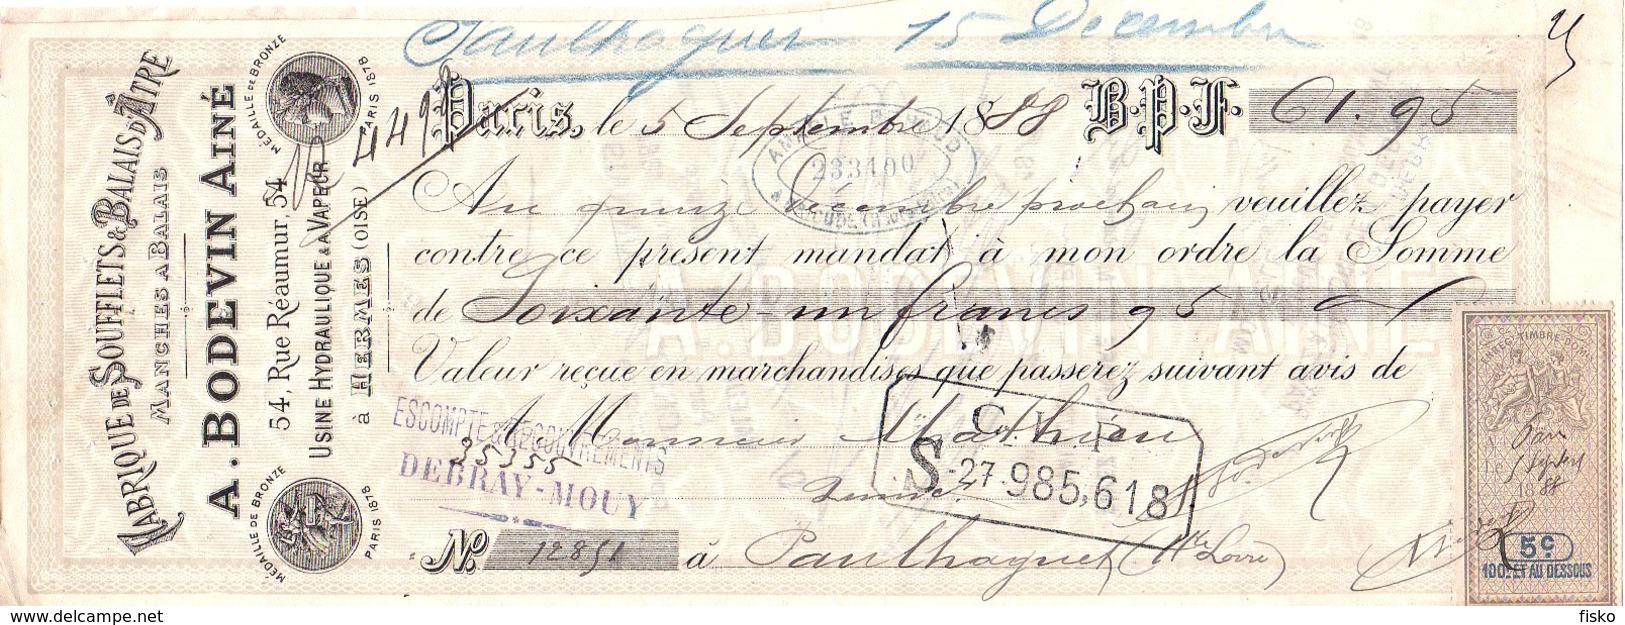 Paulhaguet 15 Decembre
FABRIQUE DE SOUFFLETS & BALAIS D'ÂTRE
MANCHES A BALAIS
A. BODEVIN AINÉ
54, Rue Réaumur, 54
USINE HYDRAULIQUE & A VAPEUR
à HERMES (OISE)
MÉDAILLE DE BRONZE
PARIS 1878
MÉDAILLE DE BRONZE
PARIS 1878
Paris, le 5 Septembre 1888 B.P.F. 61.95
233400
Au quinze Décembre prochain veuillez payer
contre ce présent mandat à mon ordre la Somme
de Soixante-un francs 95
A. BODEVIN AINÉ
Valeur reçue en marchandises que passerez suivant avis de
A Monsieur Mathieu
ESCOMPTE & RECOUVREMENTS
35355
DEBRAY-MOUY
S-27.985,618
No. 12851 à Paulhaguet (Hte Loire)
5c
100f ET AU DESSOUS
1888
www.delcampe.net
fisko